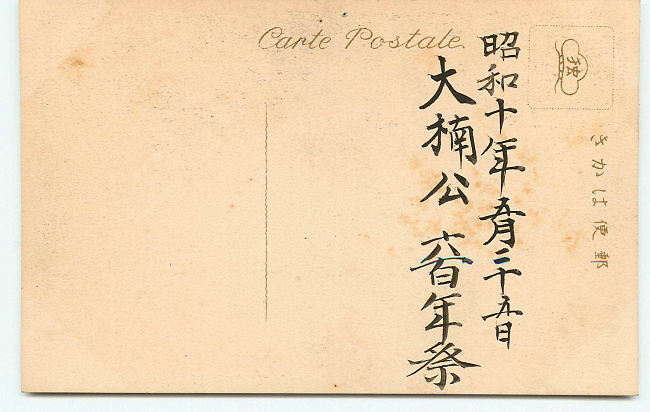 Carte Postale.
昭和十年五月二十五日
大楠公六百年祭
郵便はかき